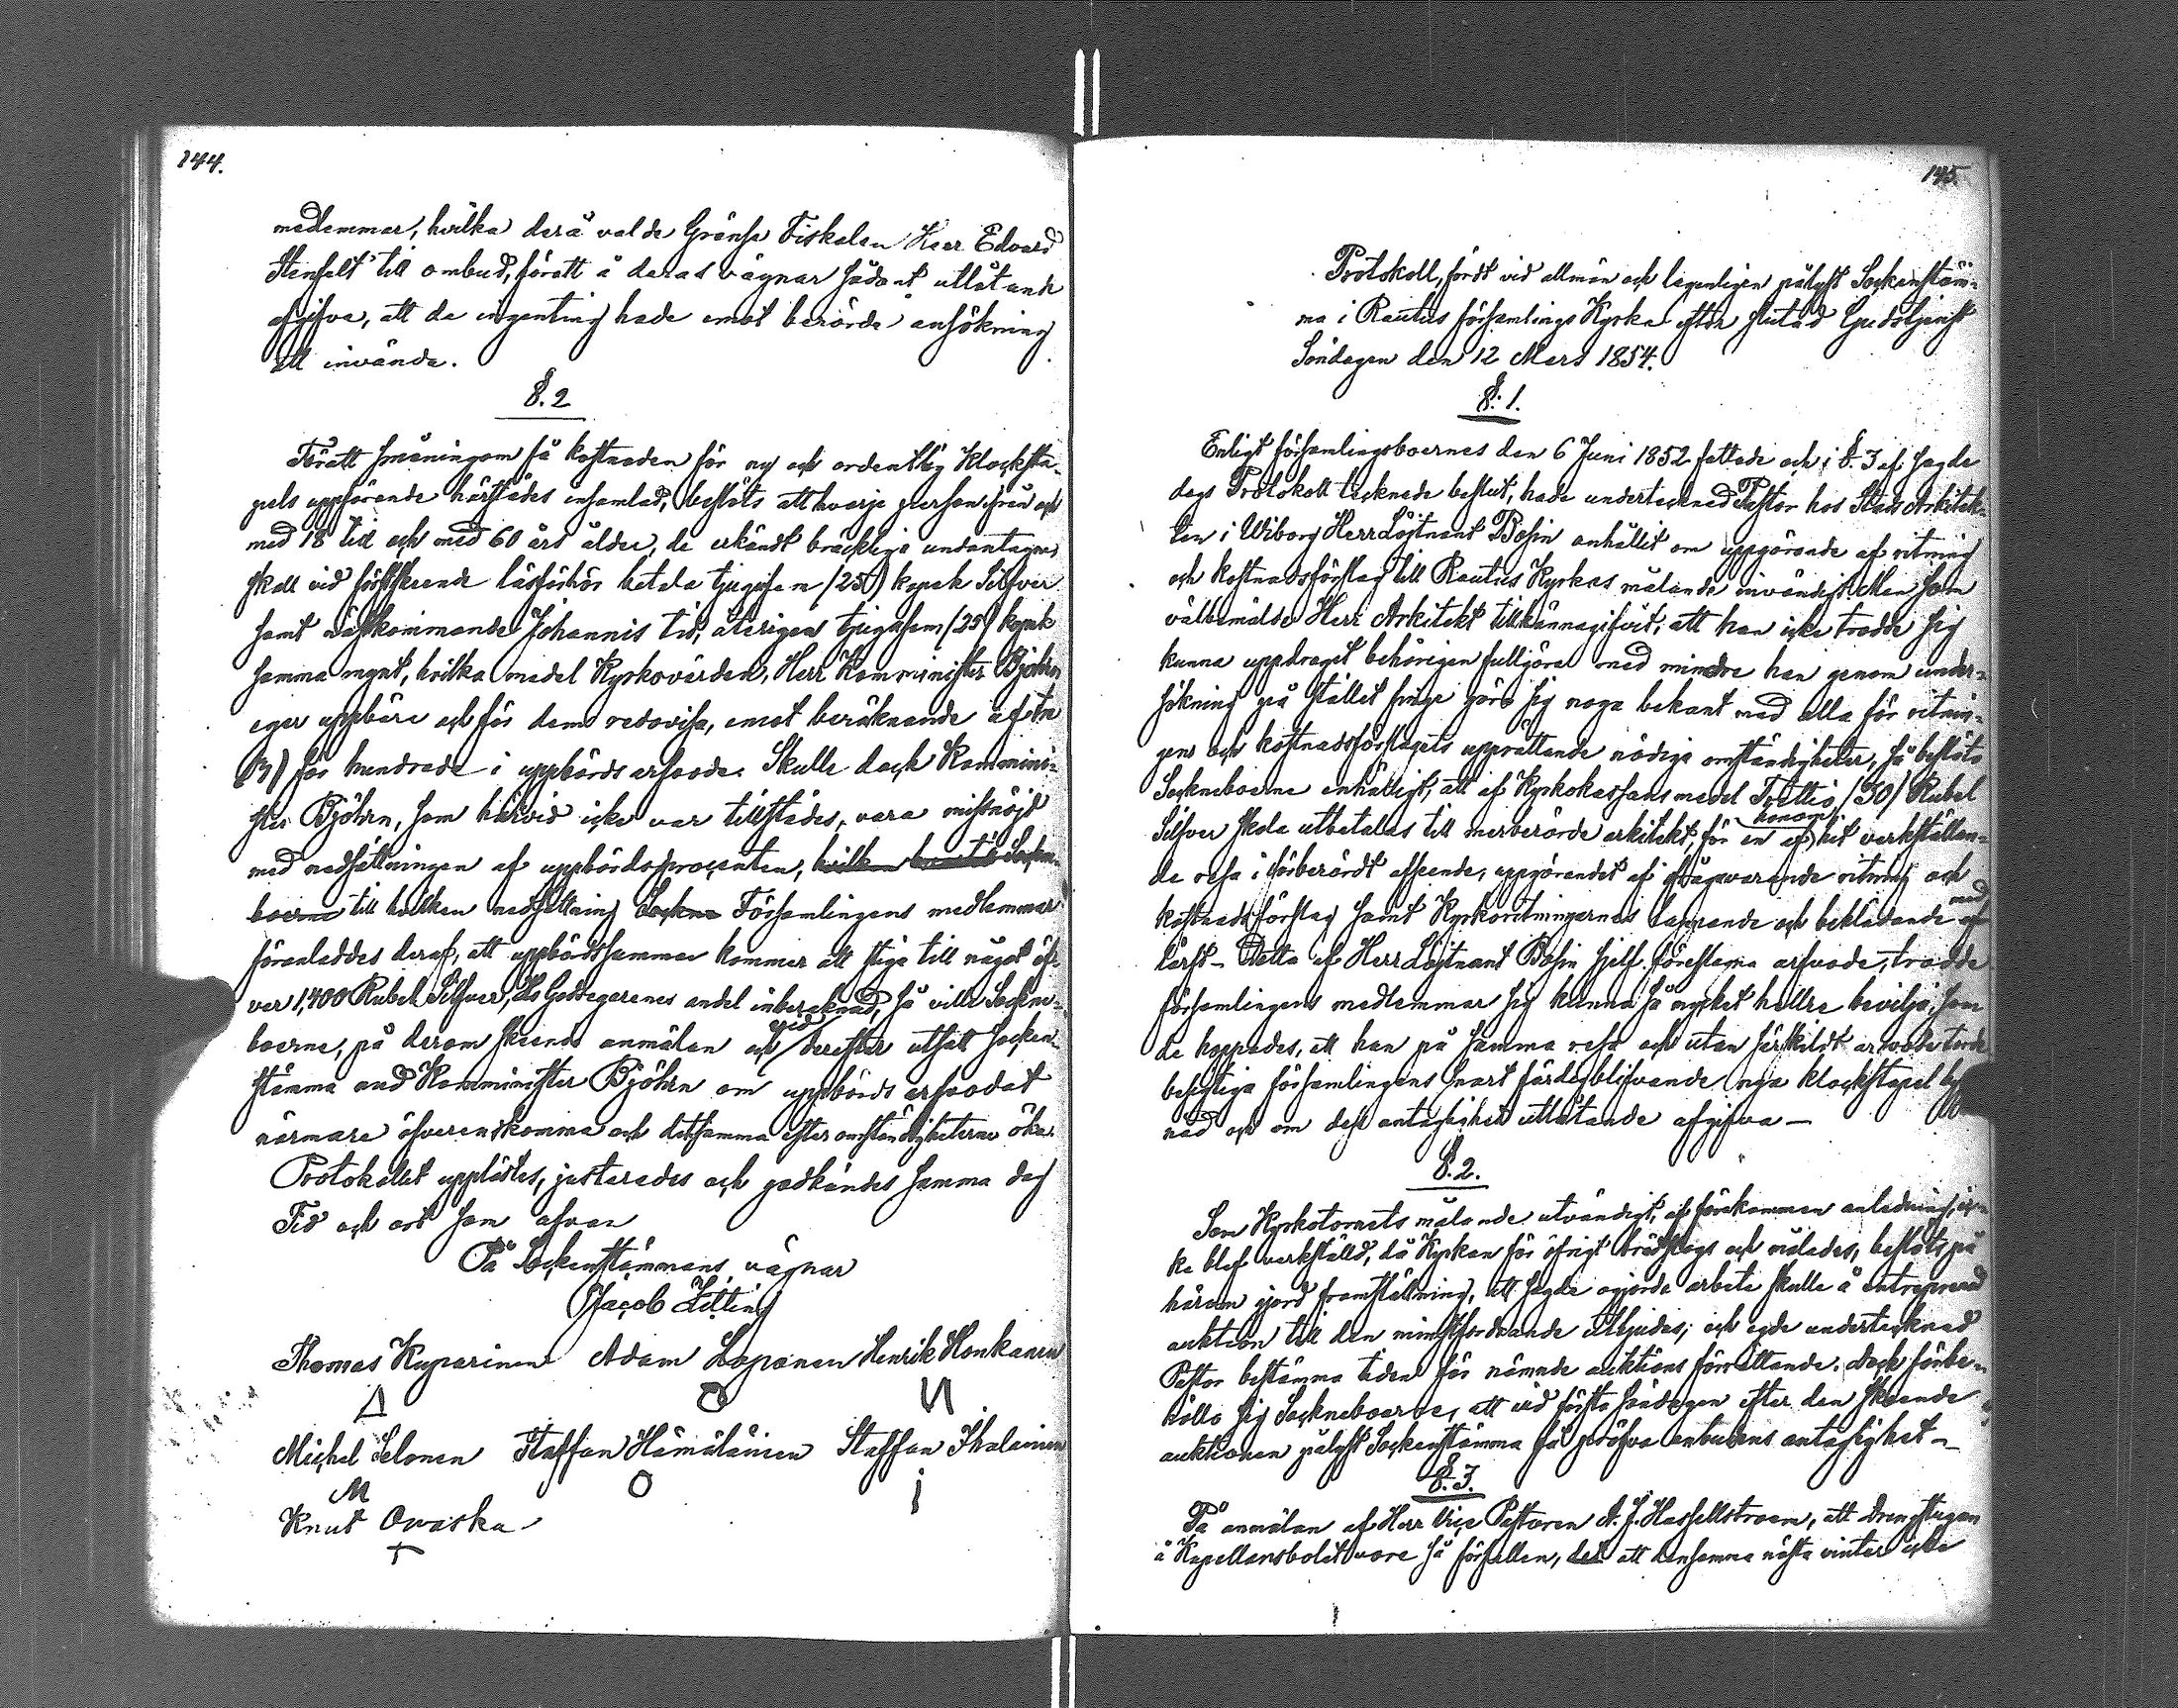 144.
medlemmar, hvilka derå valde Gränse Fiskalen Herr Edvard
Stenfelt till ombud, föratt å deras vägnar sådant utlåtande
afgifva, att de ingenting hade emot berörde ansökning
att invända.
§. 2
Föratt småningom få kostnaden för ny och ordentlig Klocksta-
pels uppförande härstädes insamlad, beslöts att hvarje person ifrån och
med 18 till och med 60 års ålder, de erkändt bräckliga undantagne,
skall vid förstskeende läsförhör betala tjugufem (25) kopek Silfver
samt nästkommande Johannis tid, återigen tjugufem (25) kopek
samma mynt, hvilka medel Kyrkovärden, Herr Komminister Björhn
eger uppbära och för dem redovisa, emot beräknande af tre
(3) för hundrade i uppbörds arfvode. Skulle dock Kommini-
ster Björhn, som härvid icke var tillstädes, vara missnöjd
med nedsättningen af uppbördsprocenten, hvilken Sockne-
boerne till hvilken nedsättning Sockne Församlingens medlemmar
föranleddes deraf, att uppbördssumman kommer att stiga till något öf-
ver 1,400 Rubel Silfver, Godsegarenes andel inberäknad, så ville Sockne-
boerne, på derom skeende anmälan och vid derefter utsatt Socken-
stämma med Komminister Björhn om uppbörds arfvodet
närmare öfverenskomma och detsamma efter omständigheterna öka.
Protokollet upplästes, justerades och godkändes samma dag
Tid och ort som ofvan
På Sockenstämmans vägnar
Jacob Zitting
Thomas Kuparinen Adam Loponen Henrik Honkanen
Michel Selonen Staffan Hämäläinen Staffan Ihalainen
M O I
Knut Owaska
145.
Protokoll, fördt vid allmän och lagenligen pålyst Sockenstäm-
ma i Rautus församlings Kyrka efter slutad Gudstjenst
Söndagen den 12 Mars 1854.
§. 1.
Enligt församlingsboernes den 6 Juni 1852 fattade och i §. 3 af sagde
dags Protokoll tecknade beslut, hade undertecknad Pastor hos Stads Arkitek-
ten i Wiborg Herr Löjtnant Bosin anhållit om uppgörande af ritning
och kostnadsförslag till Rautus Kyrkas målande invändigt. Men som
välbemälde Herr Arkitekt tillkännagifvit, att han icke trodde sig
kunna uppdraget behörigen fullgöra med mindre han genom under-
sökning på stället finge göra sig noga bekant med alla för ritnin-
gens och kostnadsförslagets upprättande nödiga omständigheter, så beslöts
Sockneboerne enhälligt, att af Kyrkokassans medel Trettio (30) Rubel
Silfver skola utbetalas till merberörde arkitekt, för en af honom hit verkställan-
de resa i förberördt afseende, uppgörandet af ifrågavarande ritning och
kostnadsförslag samt Kyrkoritningarnas lappande och beklädande med
lärft. Detta af Herr Löjtnant Bosin sjelf föreslagna arfvode, trodde
församlingens medlemmar sig kunna så mycket hellre bevilja, som
de hoppades, att han på samma resa och utan särskildt arfvode torde
besigtiga församlingens snart färdigblifvande nya klockstapel
nad och om dess antaglighet utlåtande afgifva —
§. 2.
Som Kyrkotornets målande utvändigt, af förekommen anledning, ic-
ke blef verkställd, då Kyrkan för öfrigt brädslogs och målades, beslöts på
härom gjord framställning, att sagde ogjorde arbete skulle å entreprenad
auktion till den minstfordrande utbjudas; och egde undertecknad
Pastor bestämma tiden för nämnde auktions förrättande. Dock förbe-
höllo sig Sockneboerne, att vid första söndagen efter den skeende
auktionen pålyst Sockenstämma få pröfva anbudens antaglighet —
§. 3.
På anmälan af Herr Vice Pastoren A. J. Hassellstroem, att drängstugan
å Kapellansbolet vore så förfallen, det att densamma nästa vinter icke